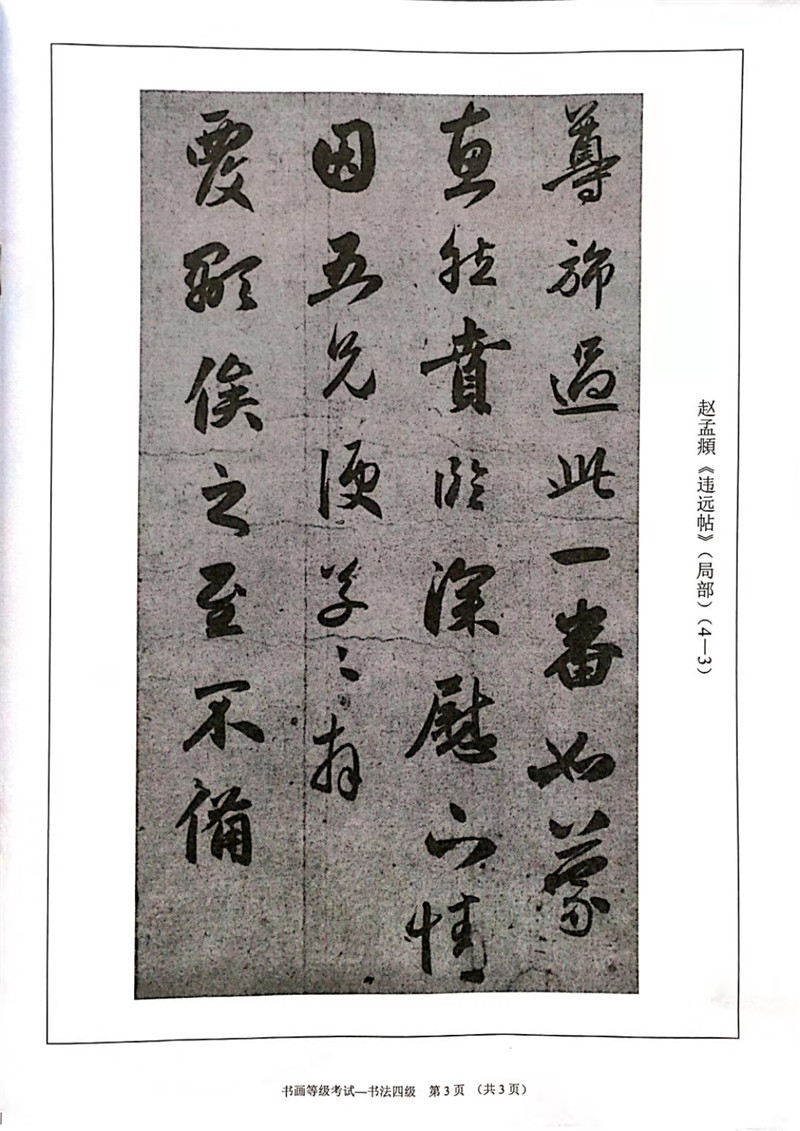 尊旆過此一番如蒙
惠然賁臨深慰下情
因五兄便草々拜
覆顒俟之至不備
赵孟頫《违远帖》（局部）（4—3）
书画等级考试—书法四级 第3页 （共3页）